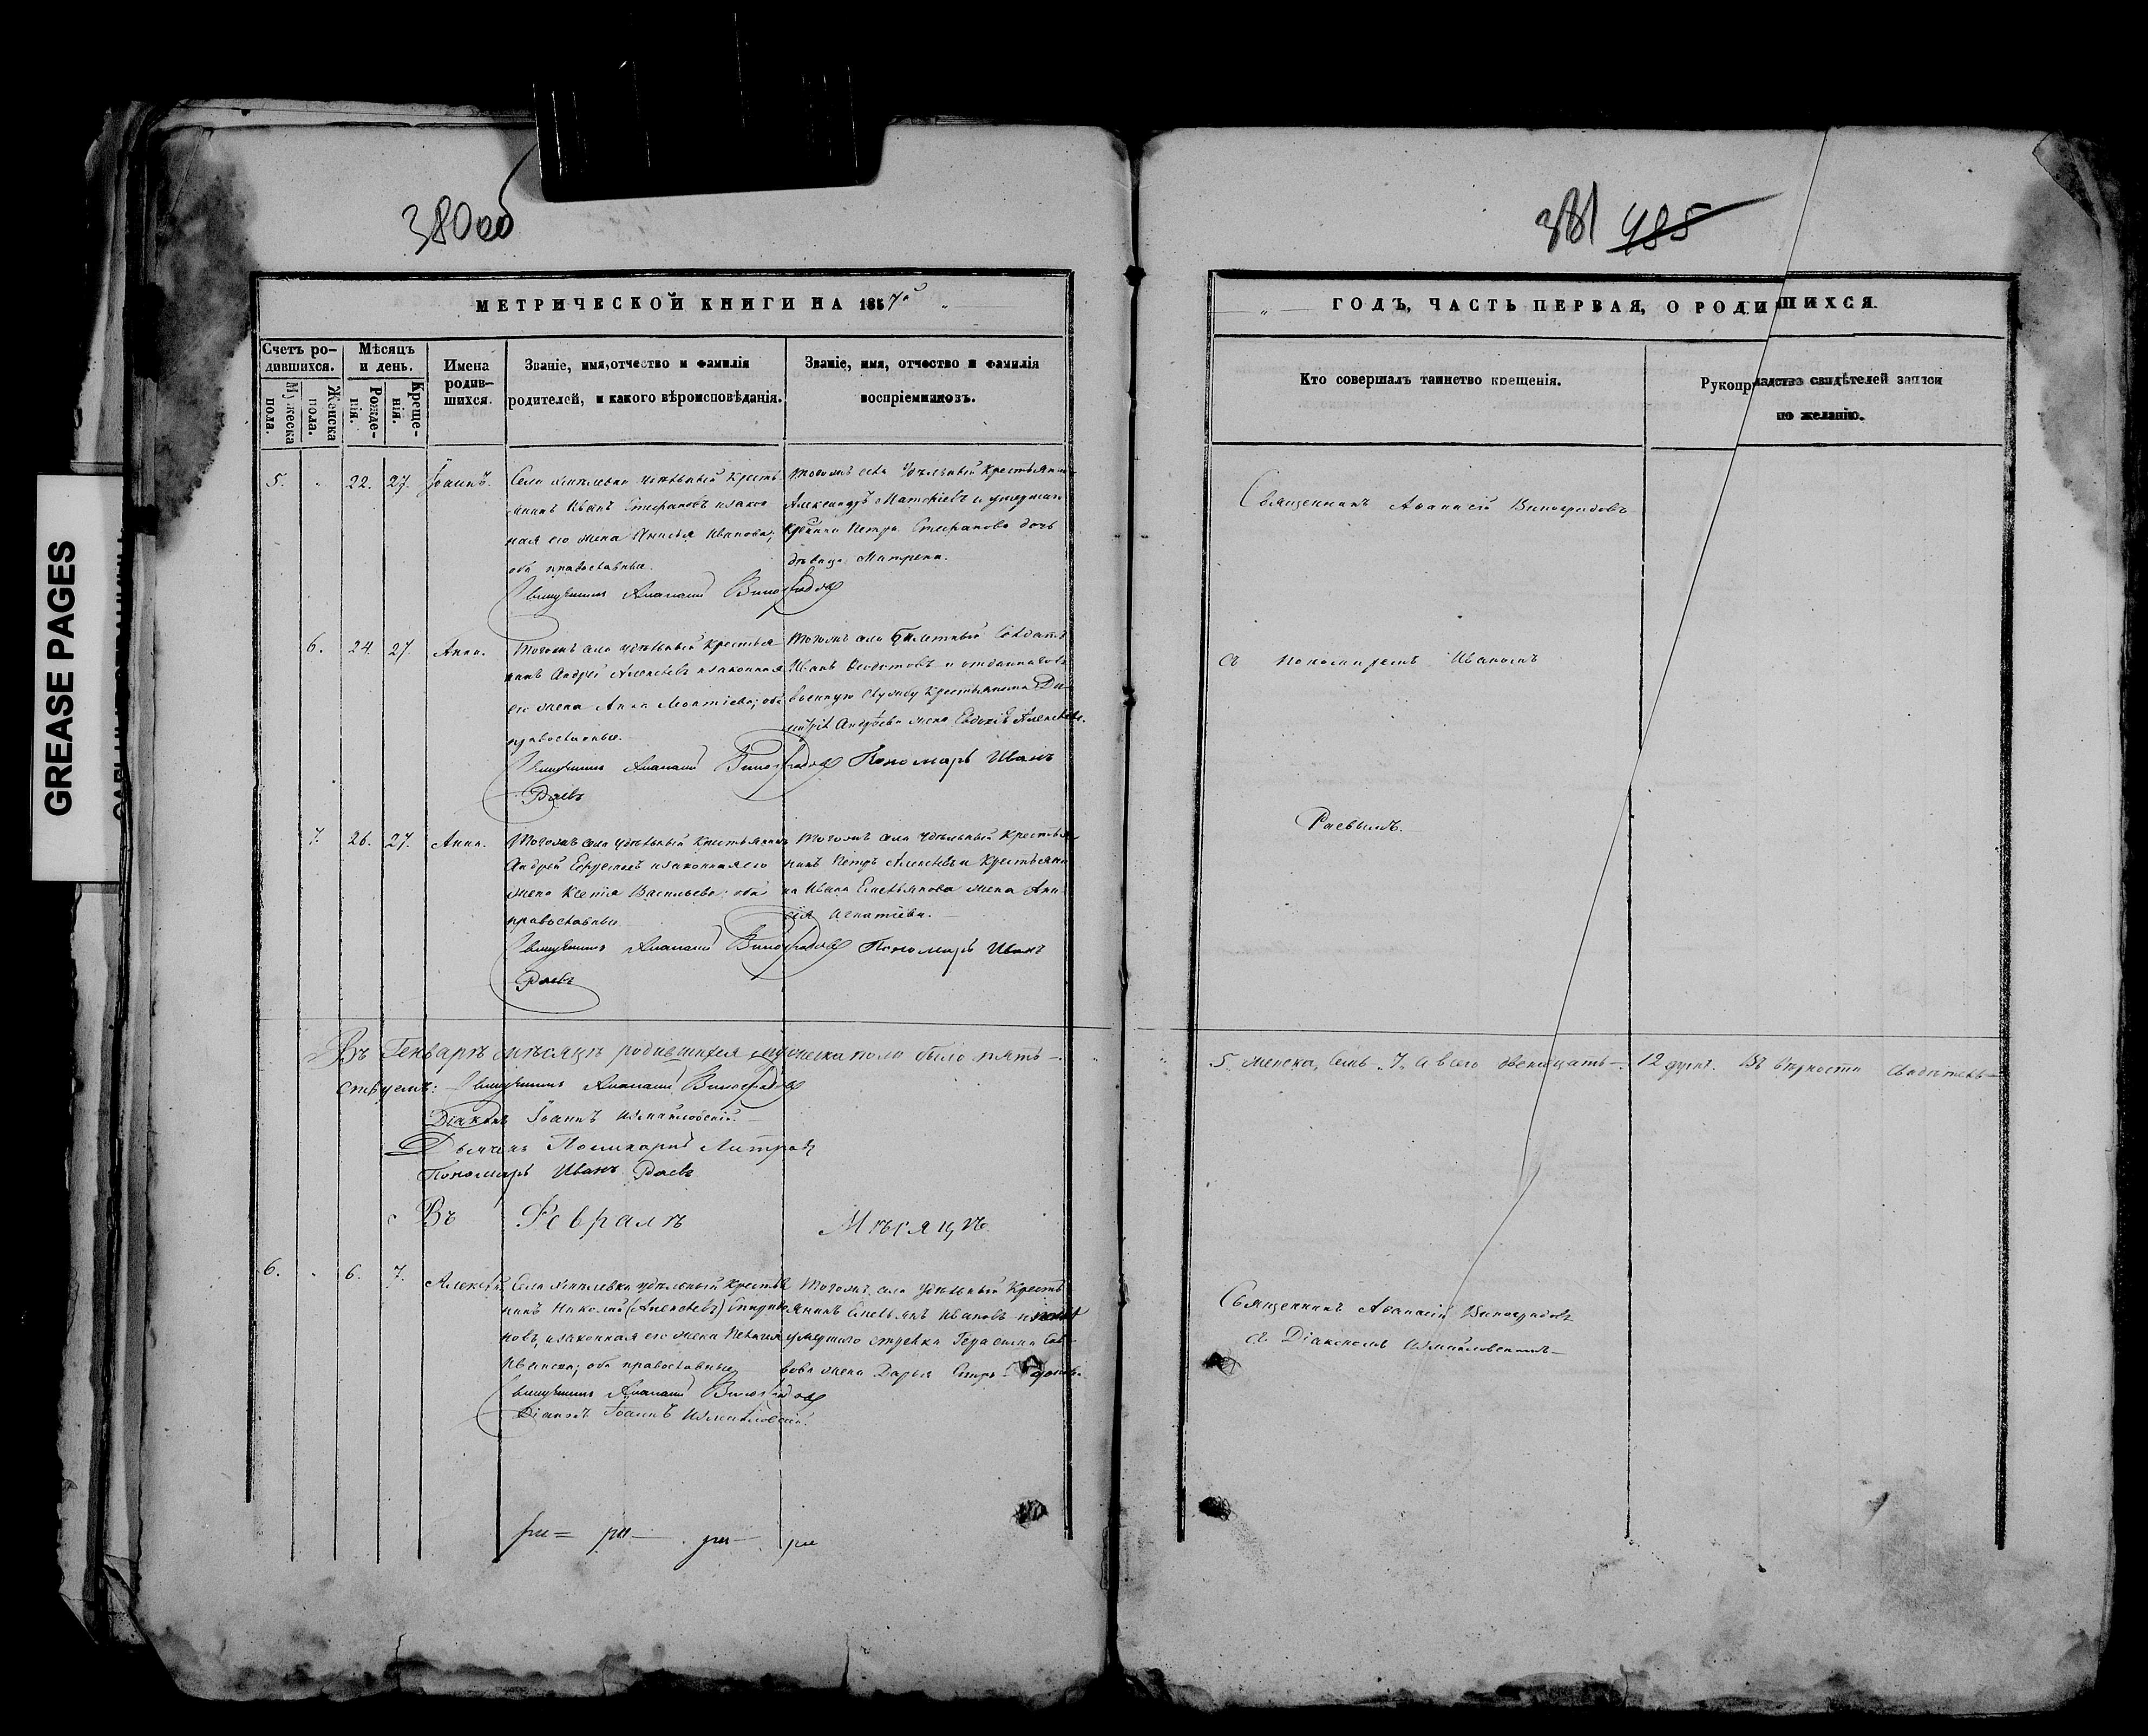 GREASE PAGES
380об
381 485
МЕТРИЧЕСКОЙ КНИГИ НА 1857й
ГОДЪ, ЧАСТЬ ПЕРВАЯ, О РОДИВШИХСЯ.
Счетъ ро-
дившихся.
Мужеска
пола.
Женска
пола.
Мѣсяцъ
и день.
Рожде-
нія.
Креще-
нія.
Имена
родив-
шихся.
Званіе, имя, отчество и фамилія
родителей, и какого вѣроисповѣданія.
Званіе, имя, отчество и фамилія
воспріемниковъ.
Кто совершалъ таинство крещенія.
Рукоприкладство свидѣтелей записи
по желанію.
5. 22. 27. Іоаннъ.
Села удѣльный кресть-
янинъ Иванъ Стефановъ и закон
ная его жена Иванова;
оба православные.
Тогожъ села удѣльный крестьянинъ
Александръ Матѳіевъ и умершаго
Петра Стефанова дочь
дѣвица Матрена.
Священникъ Аѳанасій Виноградовъ
Священникъ Аѳанасій Виноградовъ
6. 24. 27. Анна.
Тогожъ села удѣльный крестья
нинъ Андрей Алексѣевъ и законная
его жена Анна; оба
православные.
Тогожъ села билетный солдатъ
Иванъ и отданнаго въ
военную службу крестьянина Ди-
митрія Андрѣева жена Евдокія Алексѣева.
Священникъ Аѳанасій Виноградовъ Пономарь Иванъ
Раевъ
съ пономаремъ Иваномъ
Раевымъ.
7. 26. 27. Анна.
Тогожъ села удѣльный крестьянинъ
Андрей и законная его
жена Васильева; оба
православные
Тогожъ села удѣльный крестья-
нинъ Петръ Алексѣевъ и крестьяни
на Ивана Емельянова жена Ани-
сія Игнатіева.
Священникъ Аѳанасій Виноградовъ Пономарь Иванъ
Раевъ
Въ Генварѣ мѣсяцѣ родившихся мужеска пола было пять —
5. женска, семь 7. а всего двенадцать — 12 душъ. Въ вѣрности свидѣтель-
ствуемъ: Священникъ Аѳанасій Виноградовъ
Діаконъ Іоаннъ Измайловскій.
Дьячекъ Поликарпъ
Пономарь Иванъ Раевъ
Въ Февралѣ Мѣсяцѣ.
6. 6. 7. Алексѣй.
Села удѣльный крестья
нинъ Николай (Алексѣевъ) Спиридо
новъ, и законная его жена Пелагия
Иванова; оба православные
Тогожъ села удѣльный кресть
янинъ Емельянъ Ивановъ и
умершаго стрѣлка Герасима Сав-
вова жена Дарья
Священникъ Аѳанасій Виноградовъ
Діаконъ Іоаннъ Измайловскій.
Священникъ Аѳанасій Виноградовъ
съ Діакономъ Измайловскимъ —